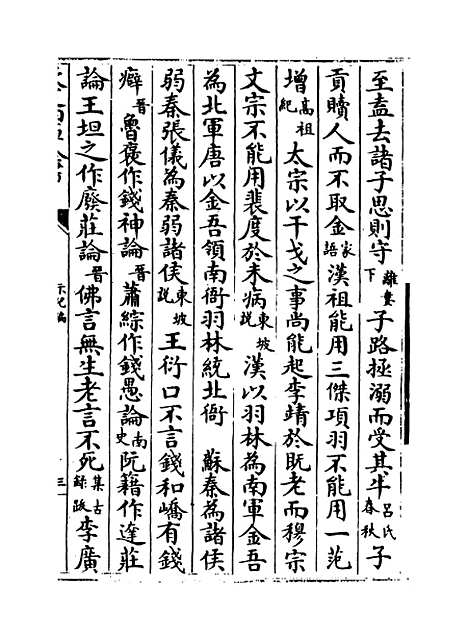 至盍去諸子思則守離婁下子路拯溺而受其牛呂氏春秋子
貢贖人而不取金家語漢祖能用三傑項羽不能用一范
增高祖紀太宗以干戈之事尚能起李靖於既老而穆宗
文宗不能用裴度於未病東坡說漢以羽林為南軍金吾
為北軍唐以金吾領南衙羽林統北衙 蘇秦為諸侯
弱秦張儀為秦弱諸侯東坡說王衍口不言錢和嶠有錢
癖晉魯褒作錢神論晉蕭綜作錢愚論南史阮籍作達莊
論王坦之作廢莊論晉佛言無生老言不死集古錄跋李廣